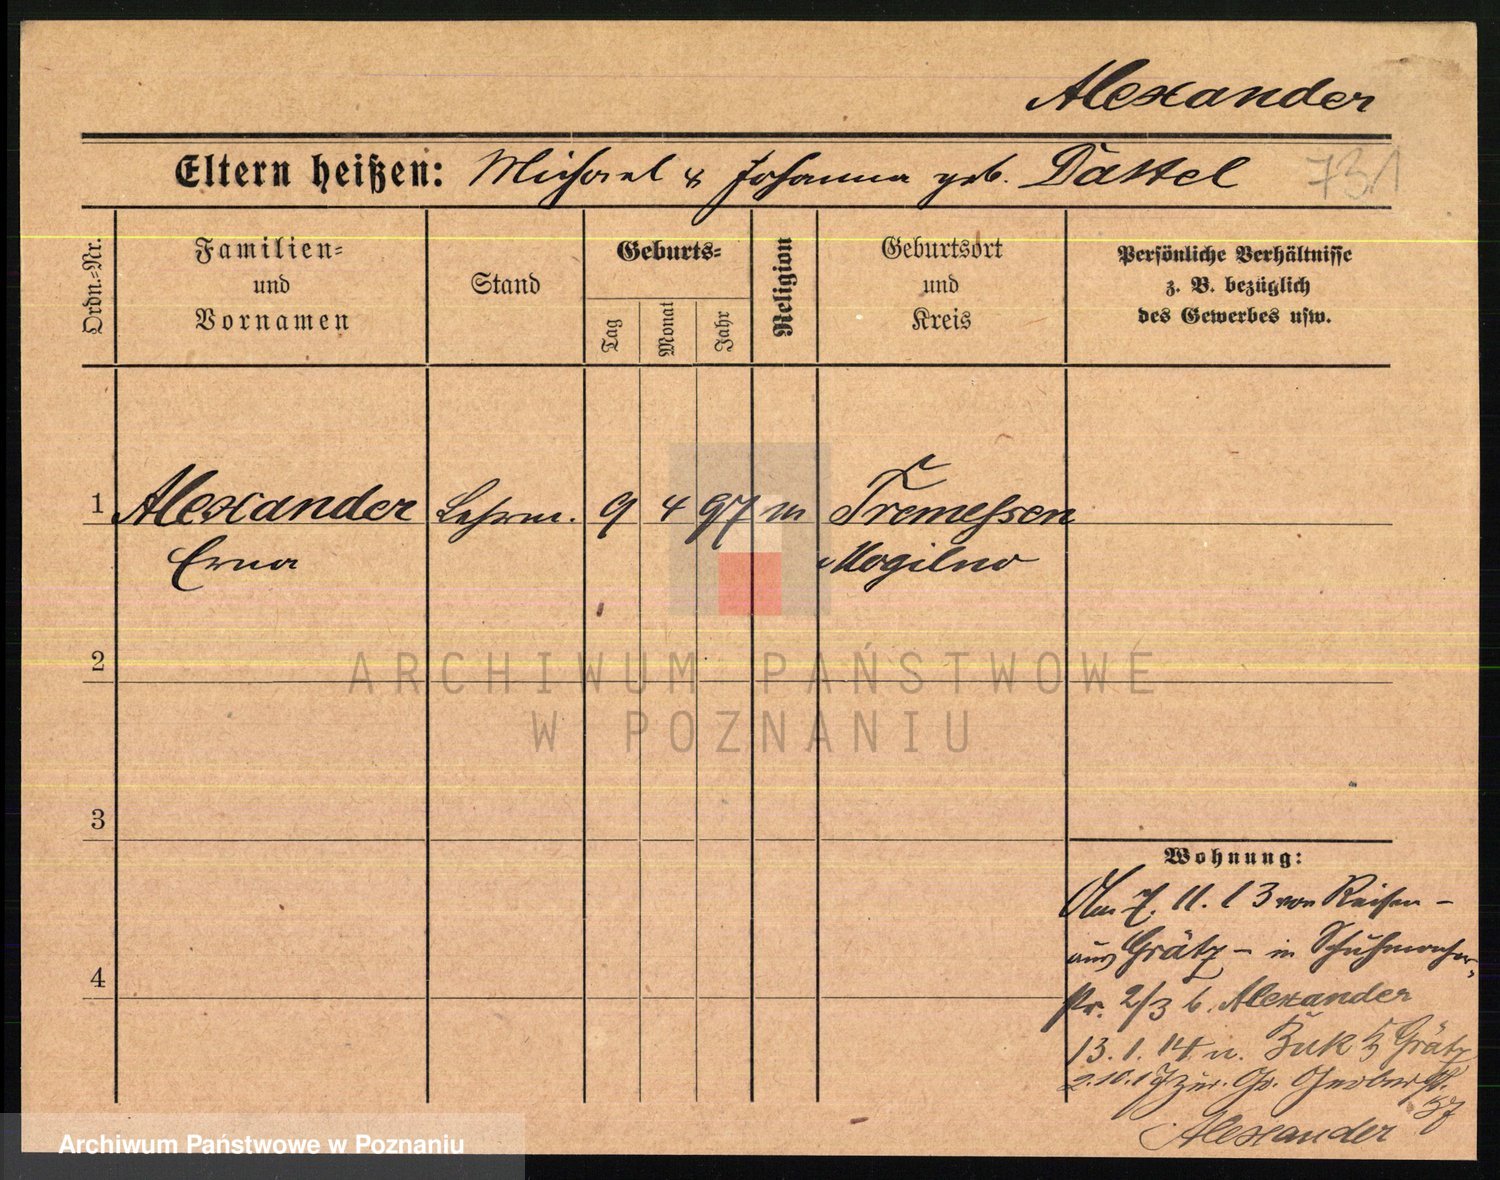 Alexander
Eltern heißen: Michael & Johanna geb. Dattel 731
Ordn.-Nr.
Familien- und Vornamen
Stand
Geburts-
Tag
Monat
Jahr
Religion
Geburtsort und Kreis
Persönliche Verhältnisse z. B. bezüglich des Gewerbes usw.
1 Alexander Lehrm. 9 4 97 m Tremessen
Erna Mogilno
2
ARCHIWUM PAŃSTWOWE
W POZNANIU
3
Wohnung:
Am 7. 11. 13 von Reisen -
aus Grätz - in Schuhmacher
str. 2/3 b. Alexander
4
13. 1. 14 n. Buk b/ Grätz
2.10.17 zur. Gr. Gerberstr. 37
Alexander
Archiwum Państwowe w Poznaniu